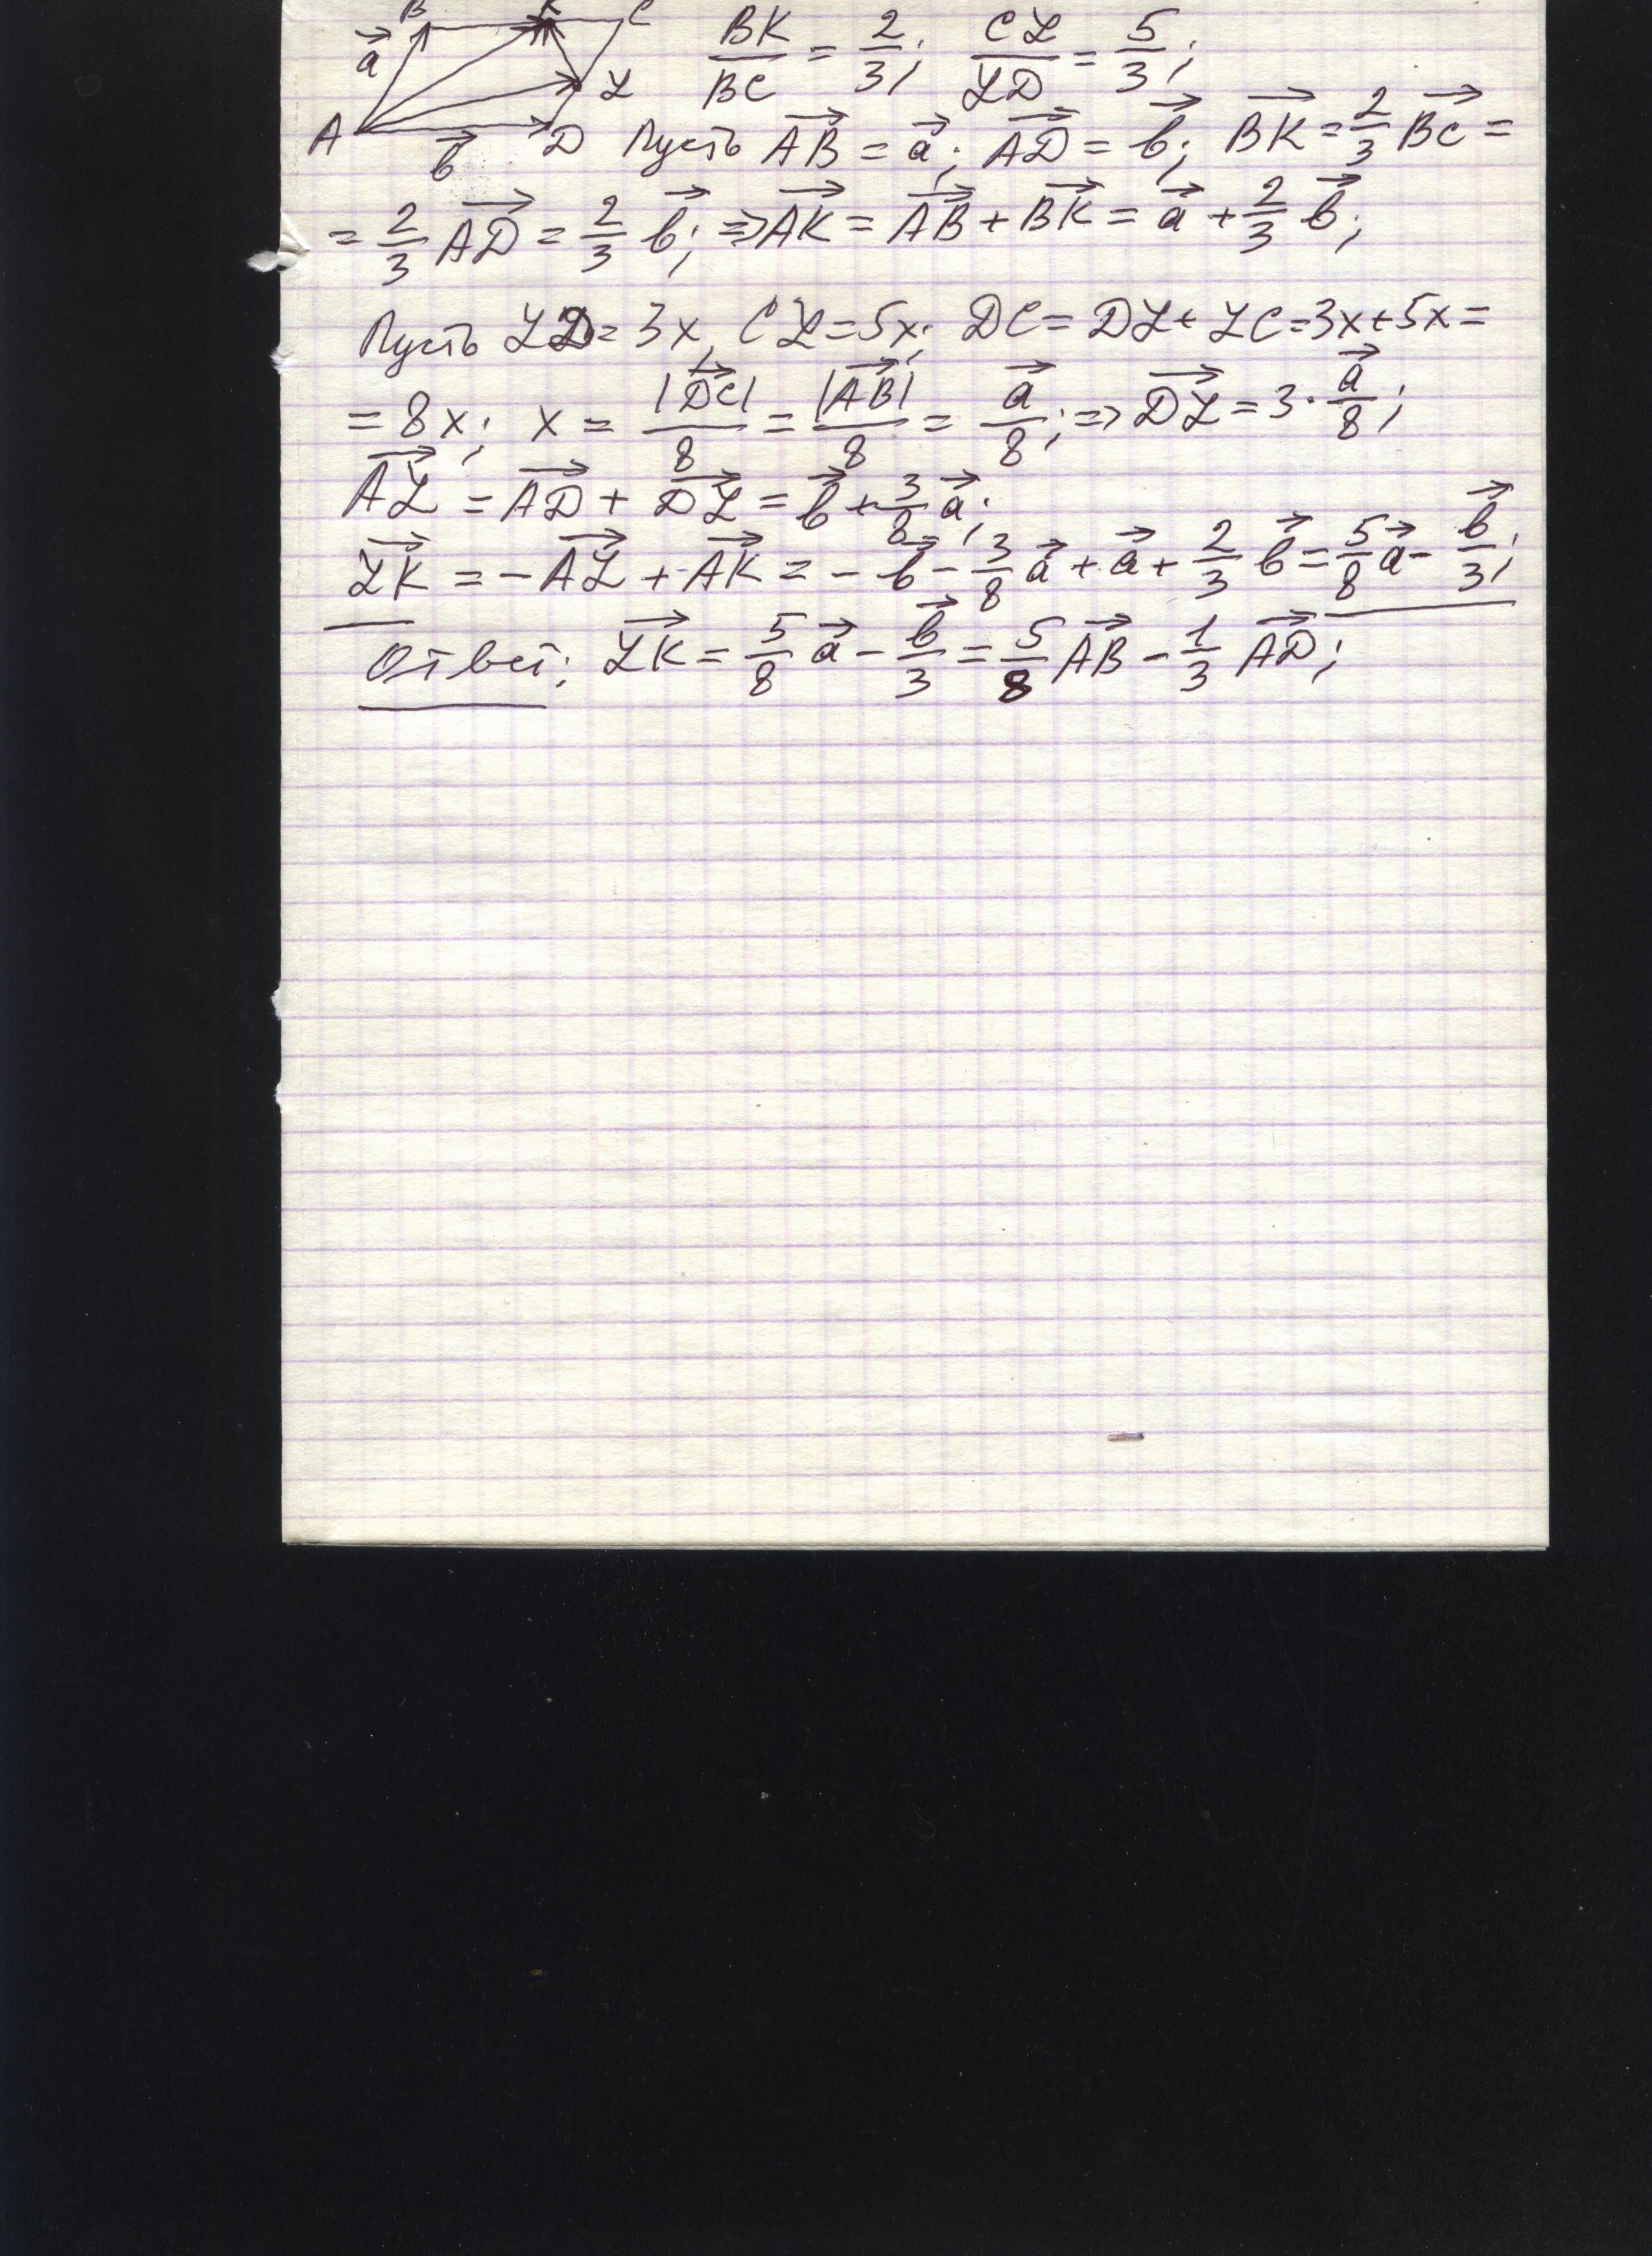 B K C
a⃗ BK/BC = 2/3; CL/LD = 5/3;
L
A b⃗ D Пусть AB⃗ = a⃗; AD⃗ = b⃗; BK⃗ = 2/3 BC⃗ =
= 2/3 AD⃗ = 2/3 b⃗; => AK⃗ = AB⃗ + BK⃗ = a⃗ + 2/3 b⃗;
Пусть LD = 3x, CL = 5x; DC = DL + LC = 3x + 5x =
= 8x; x = |DC⃗|/8 = |AB⃗|/8 = a⃗/8; => DL⃗ = 3 · a⃗/8;
AL⃗ = AD⃗ + DL⃗ = b⃗ + 3/8 a⃗;
LK⃗ = - AL⃗ + AK⃗ = - b⃗ - 3/8 a⃗ + a⃗ + 2/3 b⃗ = 5/8 a⃗ - b⃗/3;
Ответ: LK⃗ = 5/8 a⃗ - b⃗/3 = 5/8 AB⃗ - 1/3 AD⃗;